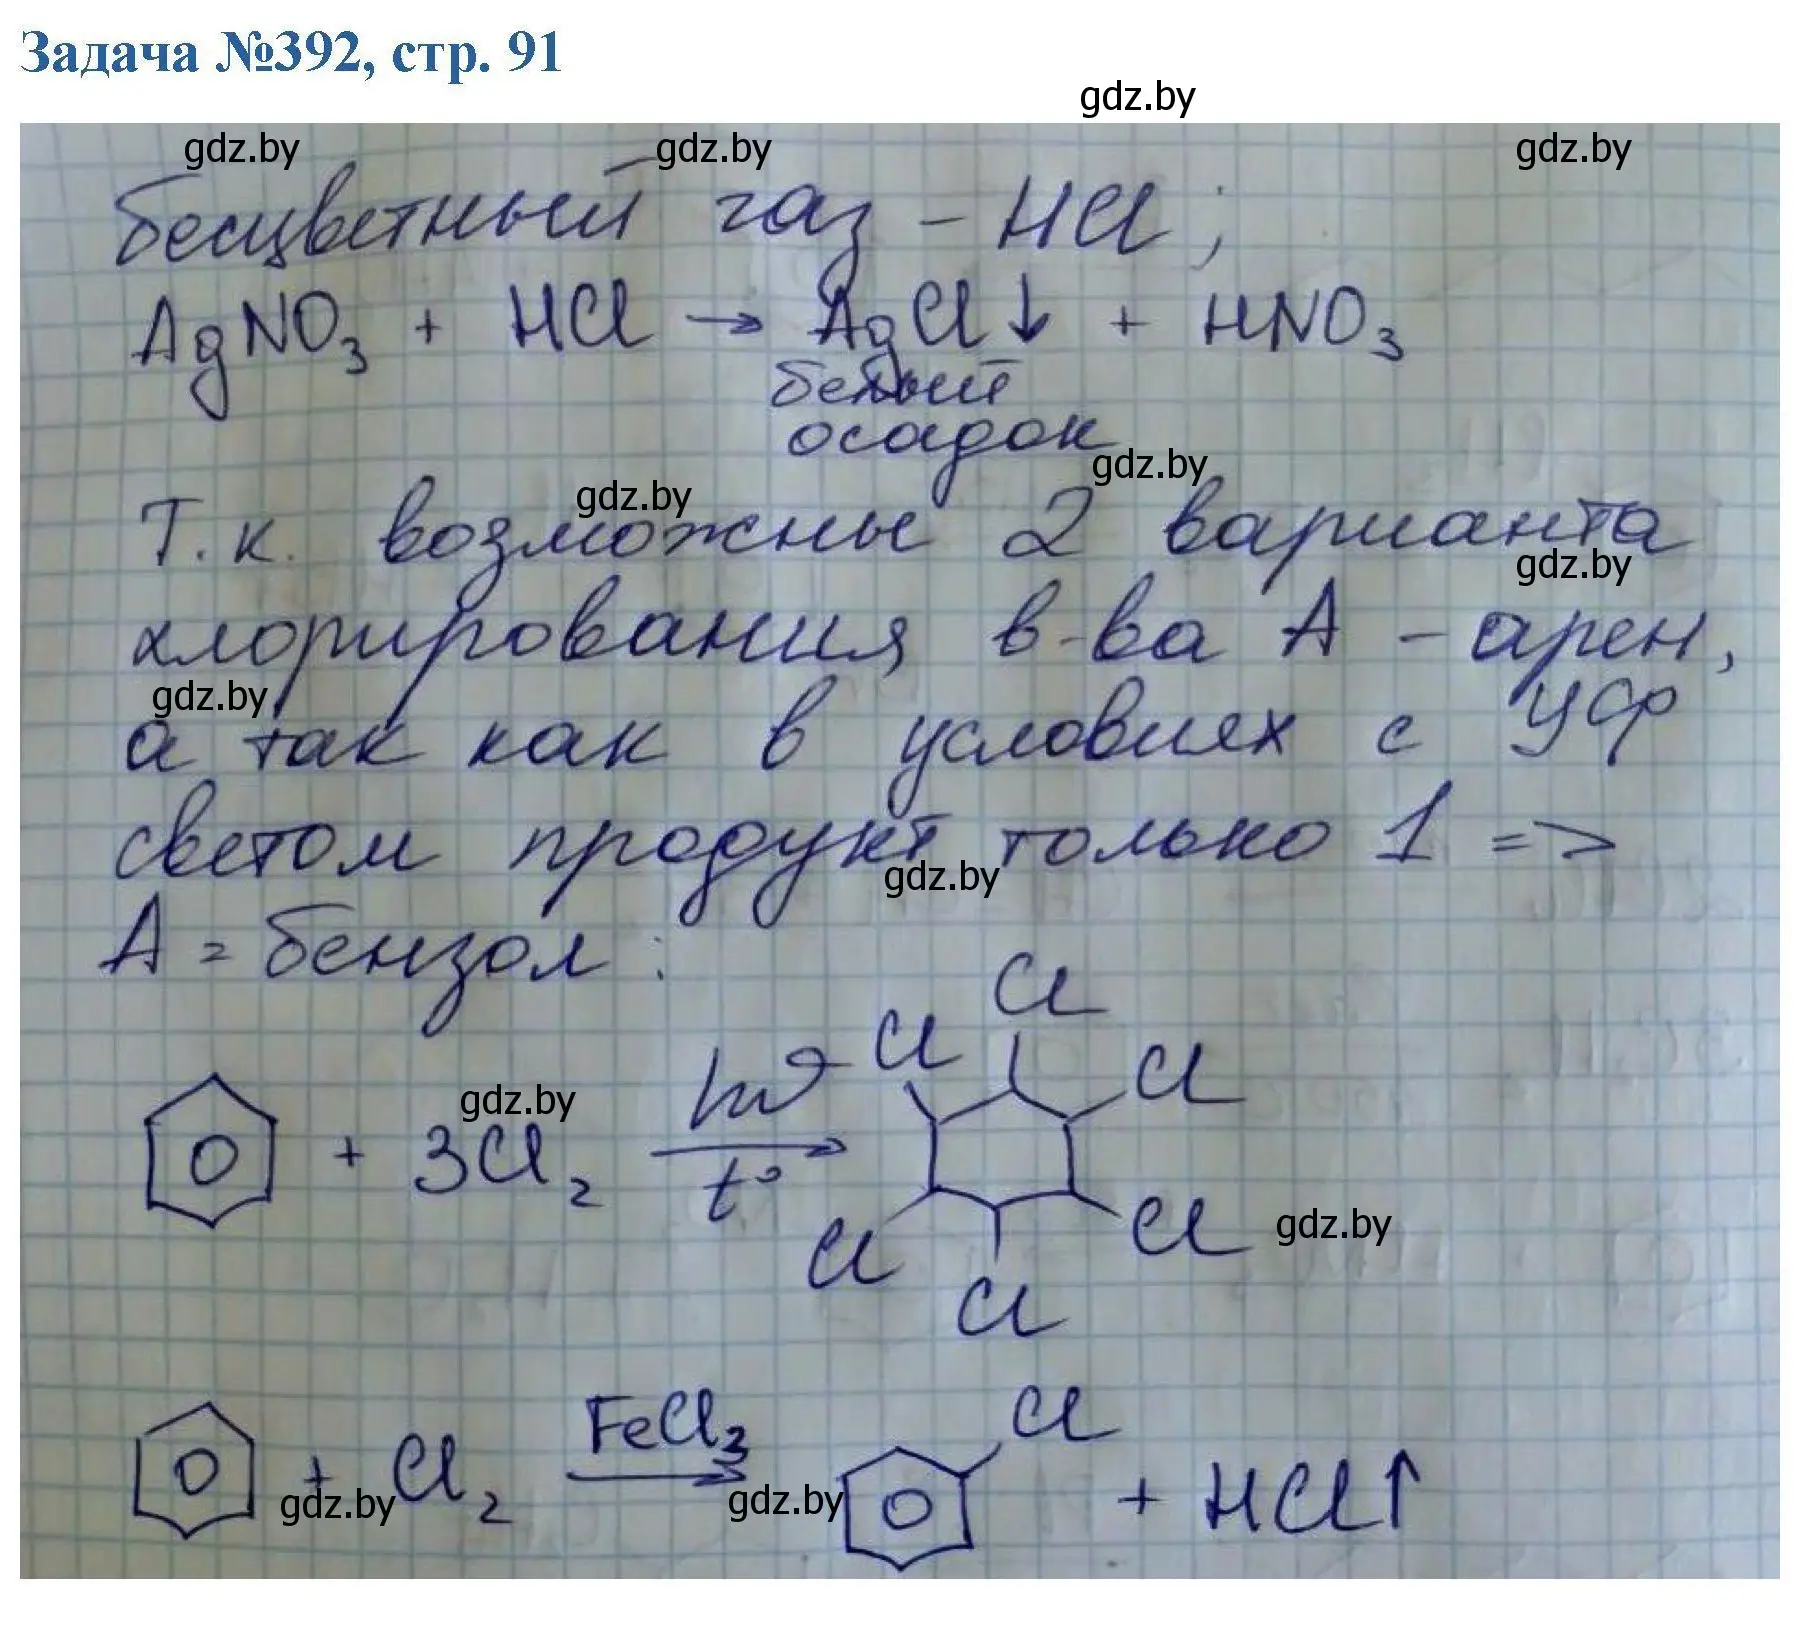 Задача №392, стр. 91
gdz.by
gdz.by gdz.by gdz.by
бесцветный газ - HCl;
AgNO₃ + HCl → AgCl↓ + HNO₃
белый
осадок
gdz.by
gdz.by
Т.к. возможны 2 варианта
gdz.by
хлорирования в-ва А - арен,
gdz.by
а так как в условиях с УФ
светом продукт только 1 =>
gdz.by
А = бензол:
Cl
Cl Cl
gdz.by
+ 3Cl₂ hν t°
Cl Cl
gdz.by
Cl
Cl
+ Cl₂ FeCl₃ + HCl↑
gdz.by gdz.by